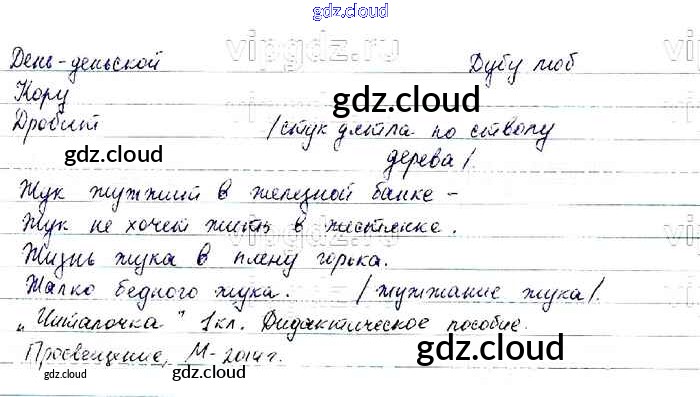 gdz.cloud
vipgdz.ru vipgdz.ru
День-деньской Дубу лоб
Кору gdz.cloud
Дробит /стук дятла по стволу
gdz.cloud дерева/.
Жук жужжит в железной банке -
Жук не хочет жить в жестянке.
vipgdz.ru vipgdz.ru
Жизнь жука в плену горька.
Жалко бедного жука. /жужжание жука/.
„Читалочка" 1кл. Дидактическое пособие.
Просвещение, М-2014г. gdz.cloud
gdz.cloud gdz.cloud